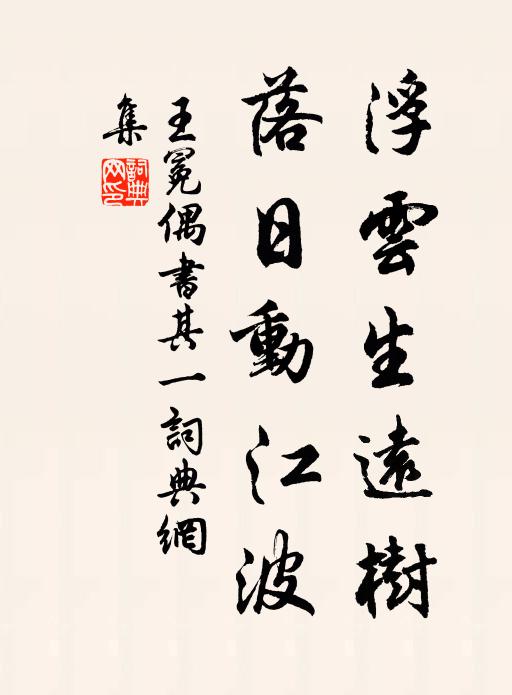 浮雲生遠樹
落日動江波
王冕偶書其一詞典網
集
詞典
网印